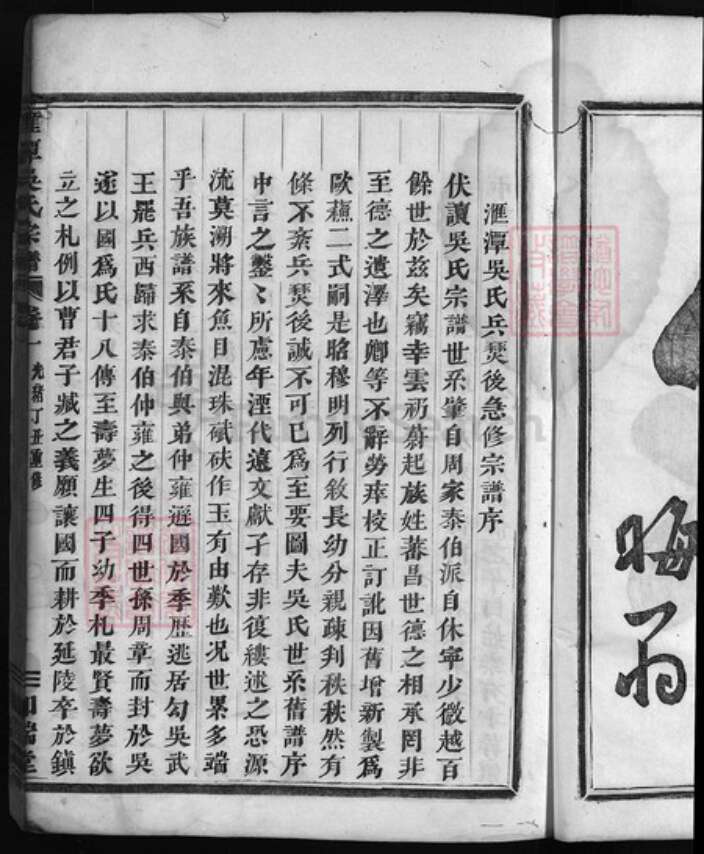 滙潭吳氏兵燹後急修宗譜序
伏讀吳氏宗譜世系肇自周家泰伯派自休寧少微越百
餘世於玆矣竊幸雲礽蔚起族姓蕃昌世德之相承罔非
至德之遺澤也卿等不辭勞瘁校正訂訛因舊增新製爲
歐蘓二式嗣是昭穆明列行敘長幼分親疎判秩秩然有
條不紊兵燹後誠不可已爲至要圖夫吳氏世系舊譜序
中言之鑿〻所慮年湮代遠文獻孑存非復縷述之恐源
流莫溯將來魚目混珠碔砆作玉有由歎也况世累多端
乎吾族譜系自泰伯與弟仲雍遜國於季歷逃居勾吳武
王罷兵西歸求泰伯仲雍之後得四世孫周章而封於吳
遂以國爲氏十八傳至壽夢生四子幼季札最賢壽夢欲
立之札例以曹君子臧之義願讓國而耕於延陵卒於鎭
滙潭吳氏宗譜 卷一 光緒丁丑重修
晦翁